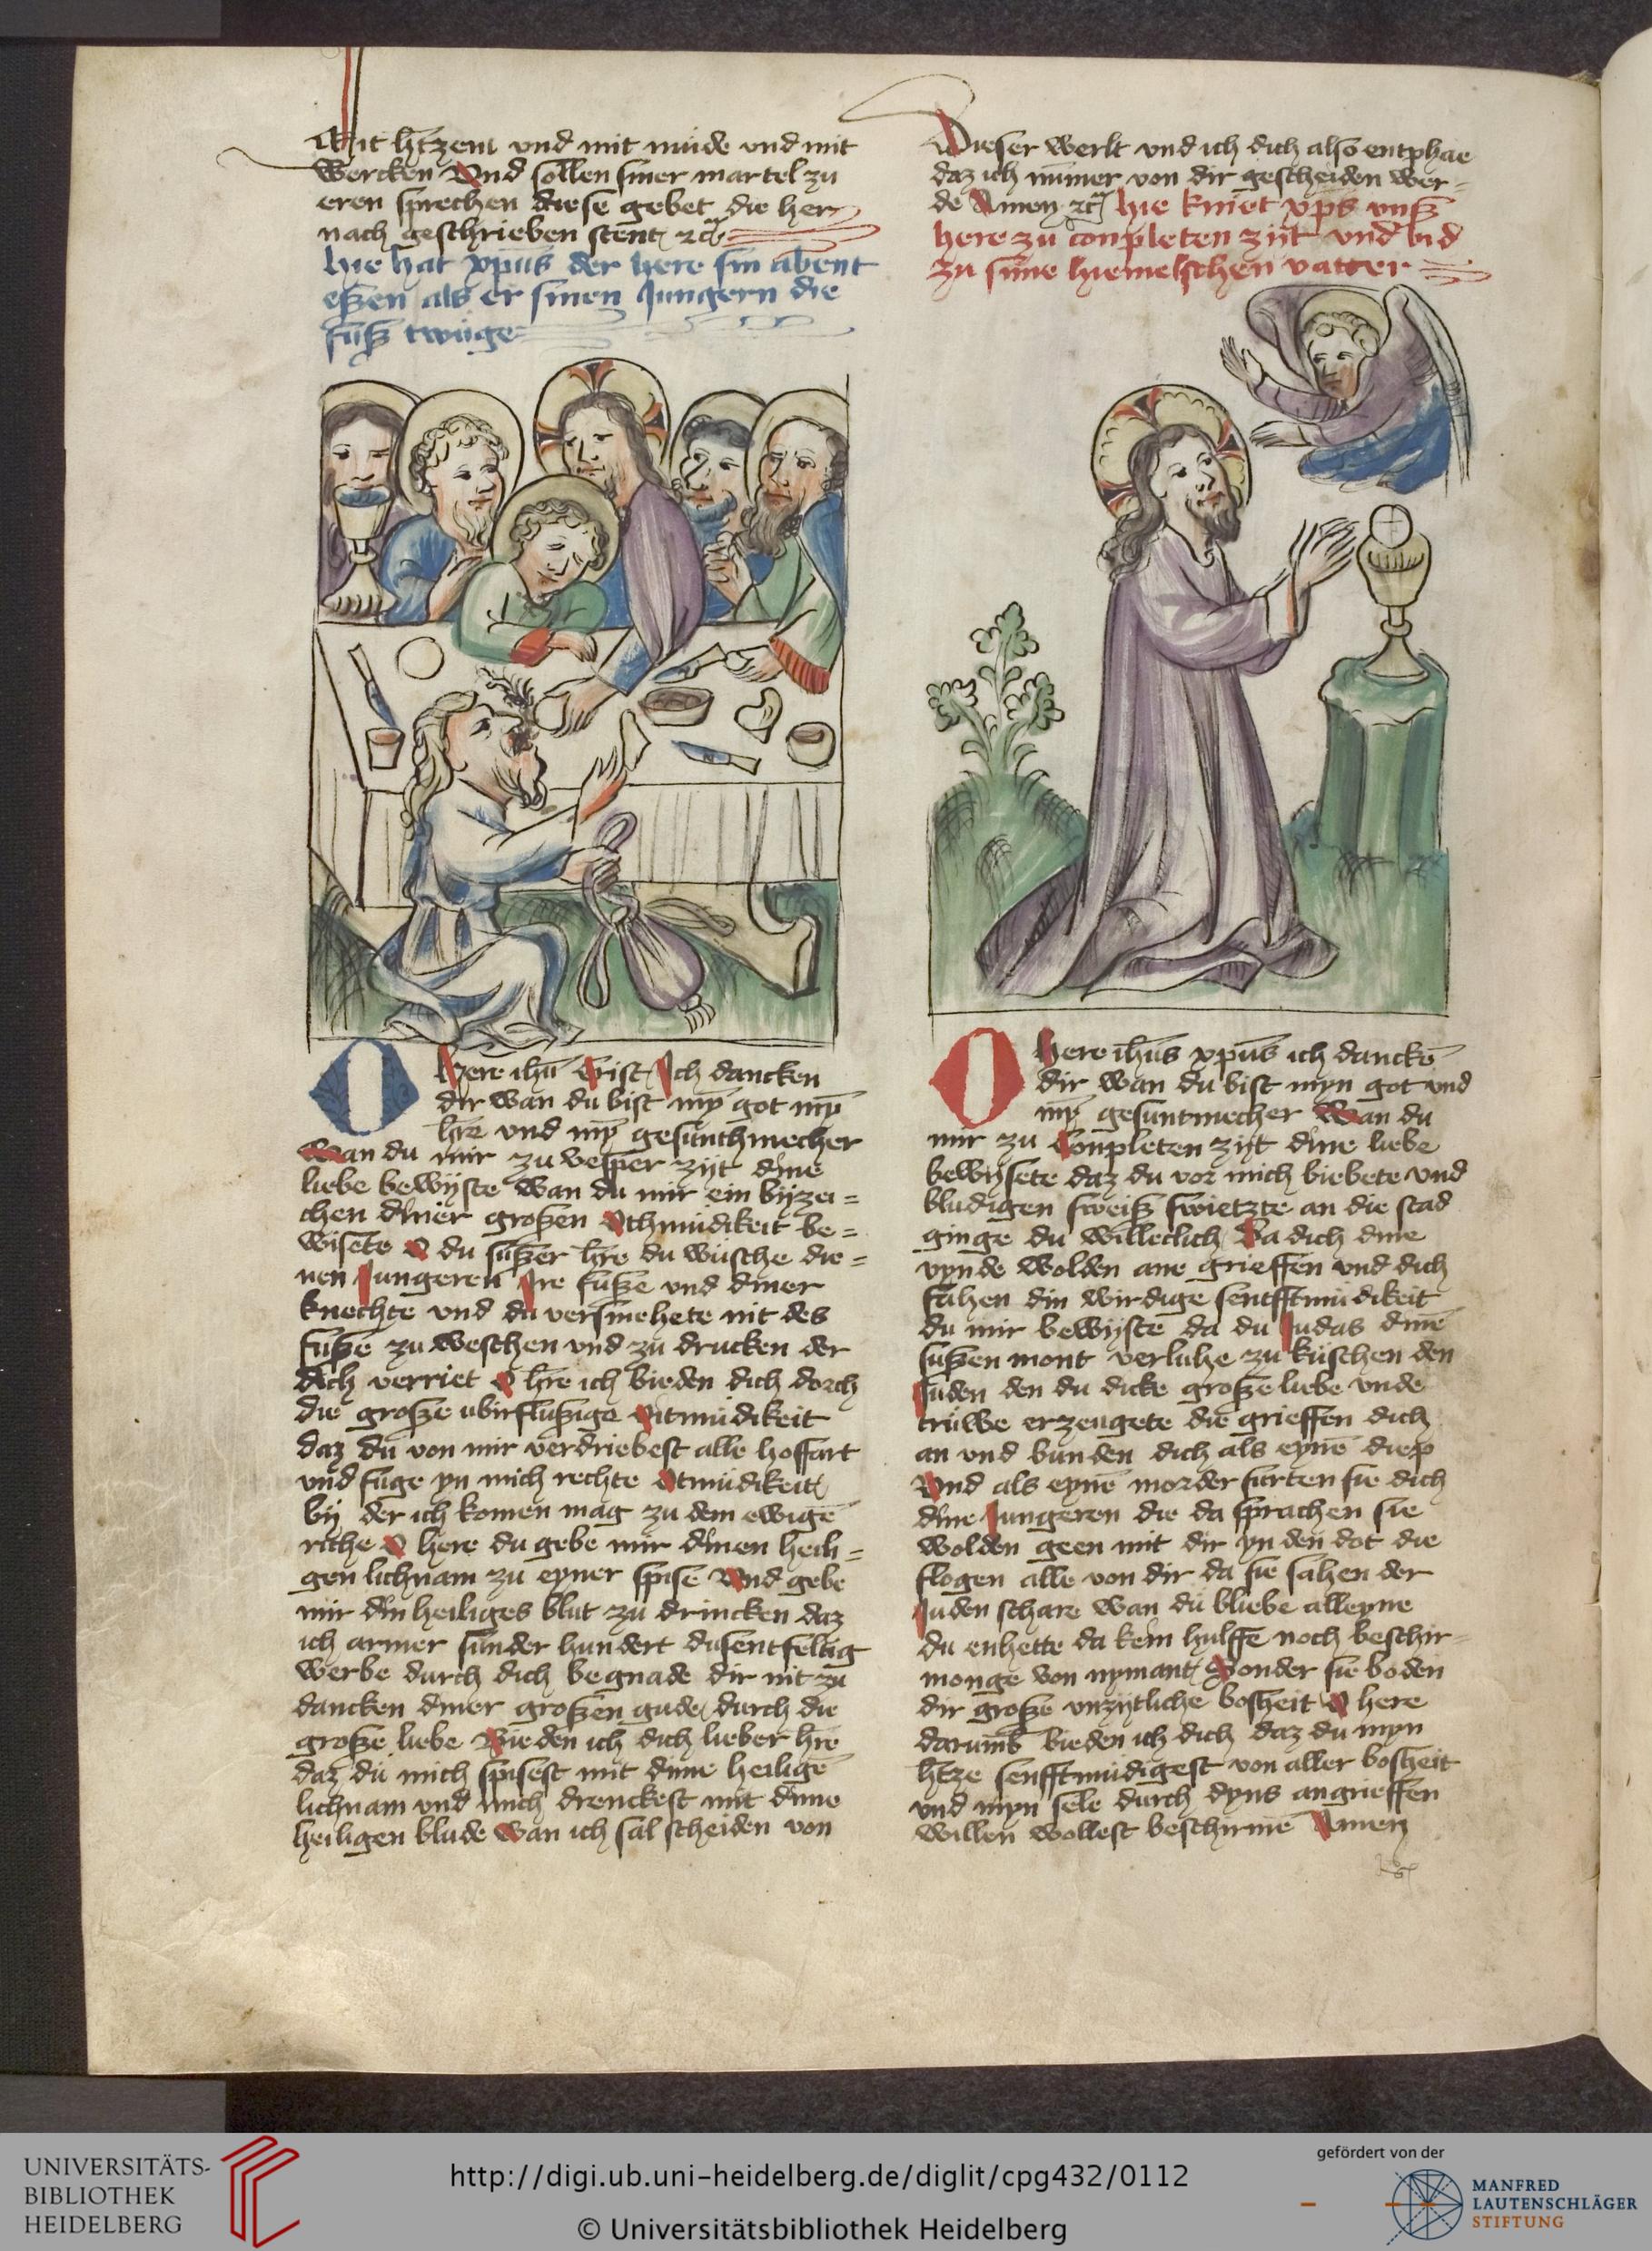 Mit htzem und mit mude vnd mit
wercken Vnd sollen siner martel zu
eren sprechen diese gebet die her
nach geschrieben stent
hie hat xpus der here sin abent
eßen als er sinen Jungern die
fuß twuge
O here ihu Crist Ich dancken
dir wan du bist myn got myn
hre vnd myn gesunthmecher
Wan du mir zu vesper zijt dine
liebe bewijste wan du mir ein bijzei=
chen diner großen Othmudikeit be=
wisete O du sußer hre du wusche die=
nen Jungeren Ire fuße vnd diner
knechte vnd du versmehete nit des
fuße zu weschen vnd zu drucken der
dich verriet O hre ich bieden dich dorch
die große ubirflußige Otmudikeit
daz du von mir verdriebest alle hoffart
vnd fuge yn mich rechte Otmudikeit
bij der ich komen mag zu dem ewigē
riche O here du gebe mir dinen heili=
gen lichnam zu eyner spise Vnd gebe
mir din heiliges blut zu drincken daz
ich armer sunder hundert dusentfeltig
werbe durch dich begnade dir nit zu
dancken diner großen gude durch die
große liebe Bieden ich dich lieber hre
daz du mich spisest mit dime heiligē
lichnam vnd mich drenckest mit dime
heiligen blude wan ich sal scheiden von
Dieser werlt vnd ich dich also entphae
daz ich nummer von dir gescheiden wer=
de Amen hie kniet xps vnß
here zu conpleten zijt vnd bid
zu sime hiemelschen vatter
O here ihus xpus ich danckē
dir wan du bist myn got vnd
myn gesuntmecher Wan du
mir zu Conpleten zijt dine liebe
bewijsete daz du vor mich biebete vnd
bludigen sweiß swietzte an die stad
ginge du willeclich Da dich dine
vynde wolden ane grieffen vnd dich
fahen din wirdige senfftmudikeit
du mir bewijste da du Judas dinē
sußen mont verluhe zu kuschen den
Juden den du dicke große liebe vnde
truwe erzeugete die grieffen dich
an vnd bunden dich als eynē diep
Vnd als eynē morder furten sie dich
dine Jungeren die da sprachen sie
wolden geen mit dir yn den dot die
flogen alle von dir da sie sahen der
Juden schare wan du bliebe alleyne
du enhette da kein hulffe noch beschir=
monge von nymant Sonder sie boden
dir große vnzijtliche bosheit O here
darumb bieden ich dich daz du myn
htze senfftmudigest von aller bosheit
vnd myn sele durch dyns angrieffen
willen wollest beschirmē Amen
UNIVERSITÄTS-
BIBLIOTHEK
HEIDELBERG
http://digi.ub.uni-heidelberg.de/diglit/cpg432/0112
© Universitätsbibliothek Heidelberg
gefördert von der
MANFRED
LAUTENSCHLÄGER
STIFTUNG